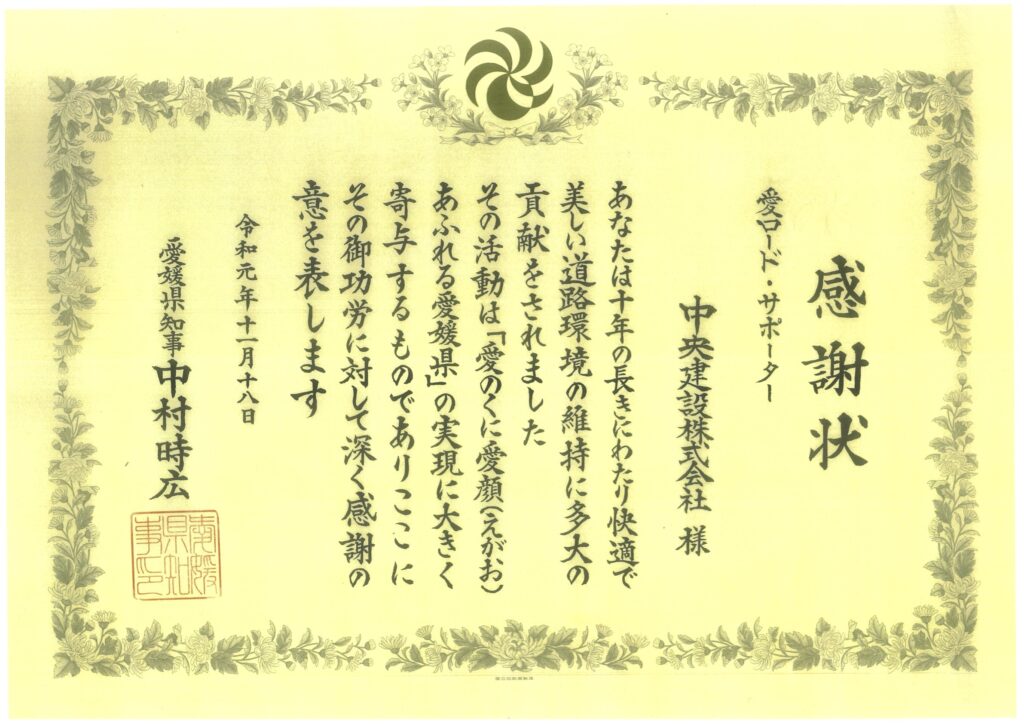 感謝状
愛ロード・サポーター
中央建設株式会社 様
あなたは十年の長きにわたり快適で
美しい道路環境の維持に多大の
貢献をされました
その活動は「愛のくに愛顔(えがお)
あふれる愛媛県」の実現に大きく
寄与するものでありここに
その御功労に対して深く感謝の
意を表します
令和元年十一月十八日
愛媛県知事 中村時広
愛媛
県知
事印